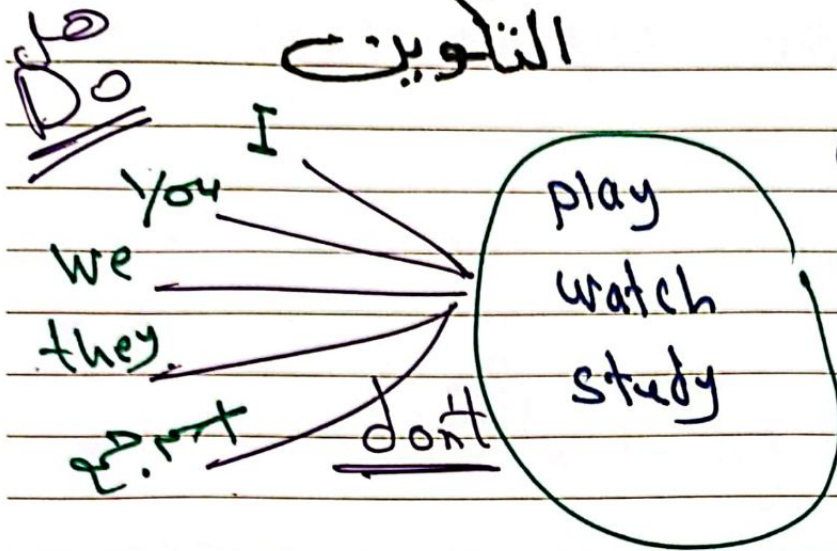 التكوين
هل
Do
I
You
we
they
اسم جمع
don't
play
watch
study